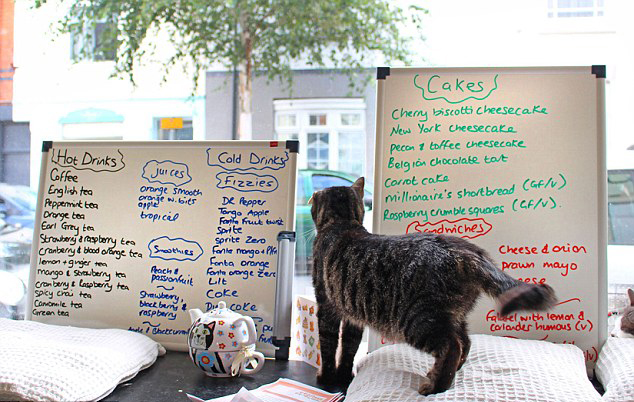 Hot Drinks
Coffee
English tea
Peppermint tea
Orange tea
Earl Grey tea
Strawberry & raspberry tea
Cranberry & blood orange tea
lemon + ginger tea
Mango & Strawberry tea
Cranberry & Raspberry tea
Spicy Chai tea
Camomile tea
Green tea
Juices
orange smooth
orange w. bits
apple
tropical
Smoothies
Peach &
passionfruit
Strawberry,
blackberrie &
raspberry
Cold Drinks
Fizzies
DR Pepper
Tango Apple
Fanta Fruit twist
Sprite
Sprite Zero
Fanta mango +
Fanta orange
Fanta orange Zero
Lilt
Coke
coke
Cakes
Cherry biscotti cheesecake
New York cheesecake
Pecan & toffee cheesecake
Belgian chocolate tart
Carrot cake
Millionaire's shortbread (GF/V)
Raspberry crumble squares (GF/V).
Sandwiches
Cheese & onion
prawn mayo
with lemon &
coriander humous (v)